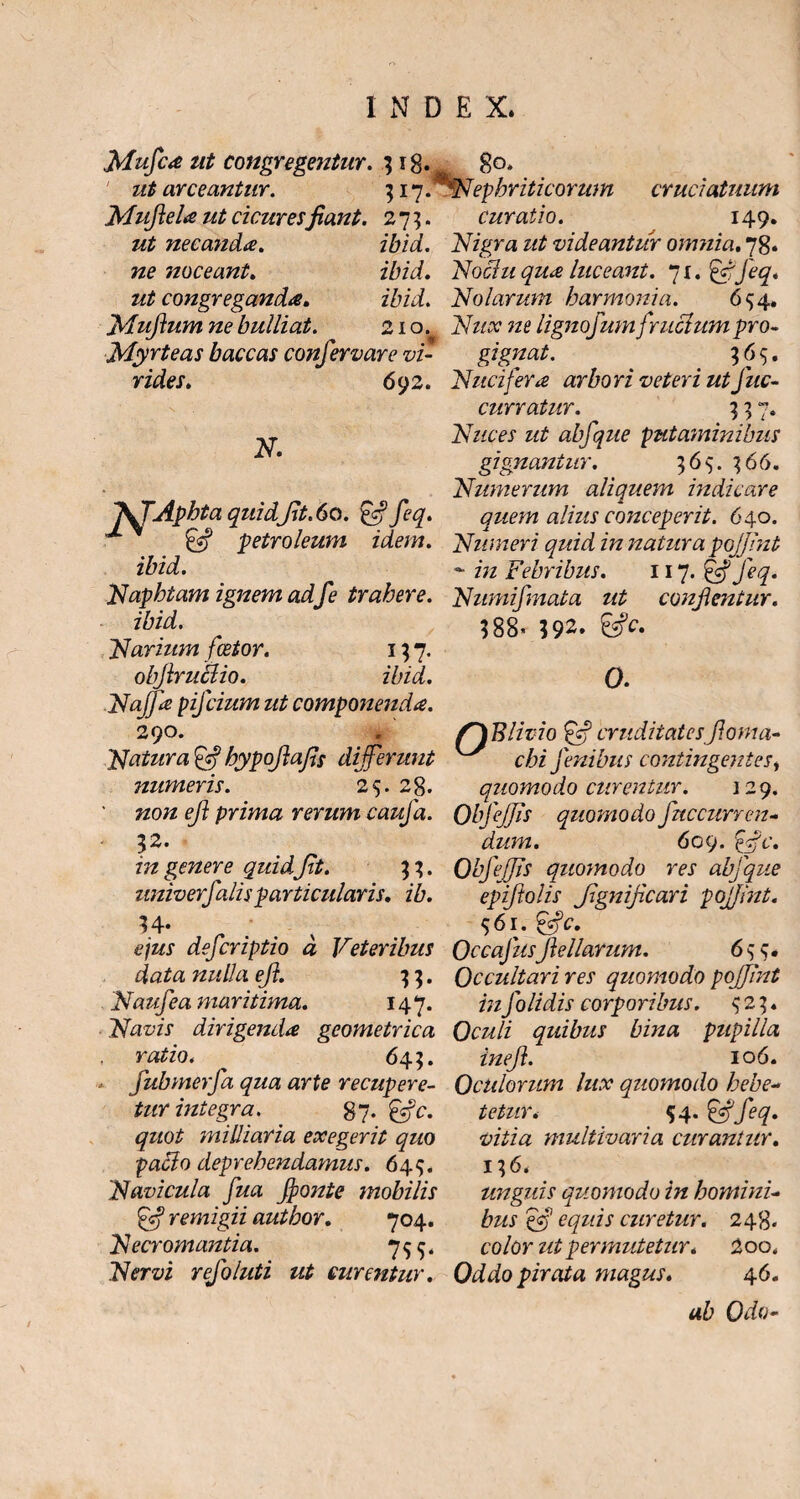 INDEX.
Muſcæ ut congregentur. 318.
ut arceantur. 317.
Muſtelæ ut cicures fiant. 273.
ut necandæ. ibid.
ne noceant. ibid.
ut congregandæ. ibid.
Muſtum ne bulliat. 210.
Myrteas baccas conſervare vi-
rides. 692.
N.
NAphta quid ſit. 60. & ſeq.
& petroleum idem.
ibid.
Naphtam ignem ad ſe trahere.
ibid.
Narium fœtor. 137.
obſtructio. ibid.
Naſſæ piſcium ut componendæ.
290.
Natura & hypoſtaſis differunt
numeris. 25. 28.
non eſt prima rerum cauſa.
32.
in genere quid ſit. 33.
univerſalis particularis. ib.
34.
ejus deſcriptio à Veteribus
data nulla eſt. 33.
Nauſea maritima. 147.
Navis dirigendæ geometrica
ratio. 643.
ſubmerſa qua arte recupere-
tur integra. 87. &c.
quot milliaria exegerit quo
pacto deprehendamus. 645.
Navicula ſua ſponte mobilis
& remigii author. 704.
Necromantia. 755.
Nervi reſoluti ut curentur.
80.
Nephriticorum cruciatuum
curatio. 149.
Nigra ut videantur omnia. 78.
Noctu quæ luceant. 71. & ſeq.
Nolarum harmonia. 654.
Nux ne lignoſum fructum pro-
gignat. 365.
Nuciferæ arbori veteri ut ſuc-
curratur. 337.
Nuces ut abſque putaminibus
gignantur. 365. 366.
Numerum aliquem indicare
quem alius conceperit. 640.
Numeri quid in natura poſſint
- in Febribus. 117. & ſeq.
Numiſmata ut conflentur.
388. 392. &c.
O.
OBlivio & cruditates ſtoma-
chi ſenibus contingentes,
quomodo curentur. 129.
Obſeſſis quomodo ſuccurren-
dum. 609. &c.
Obſeſſis quomodo res abſque
epiſtolis ſignificari poſſint.
561. &c.
Occaſus ſtellarum. 655.
Occultari res quomodo poſſint
in ſolidis corporibus. 523.
Oculi quibus bina pupilla
ineſt. 106.
Oculorum lux quomodo hebe-
tetur. 54. & ſeq.
vitia multivaria curantur.
136.
unguis quomodo in homini-
bus & equis curetur. 248.
color ut permutetur. 200.
Oddo pirata magus. 46.
ab Odo-